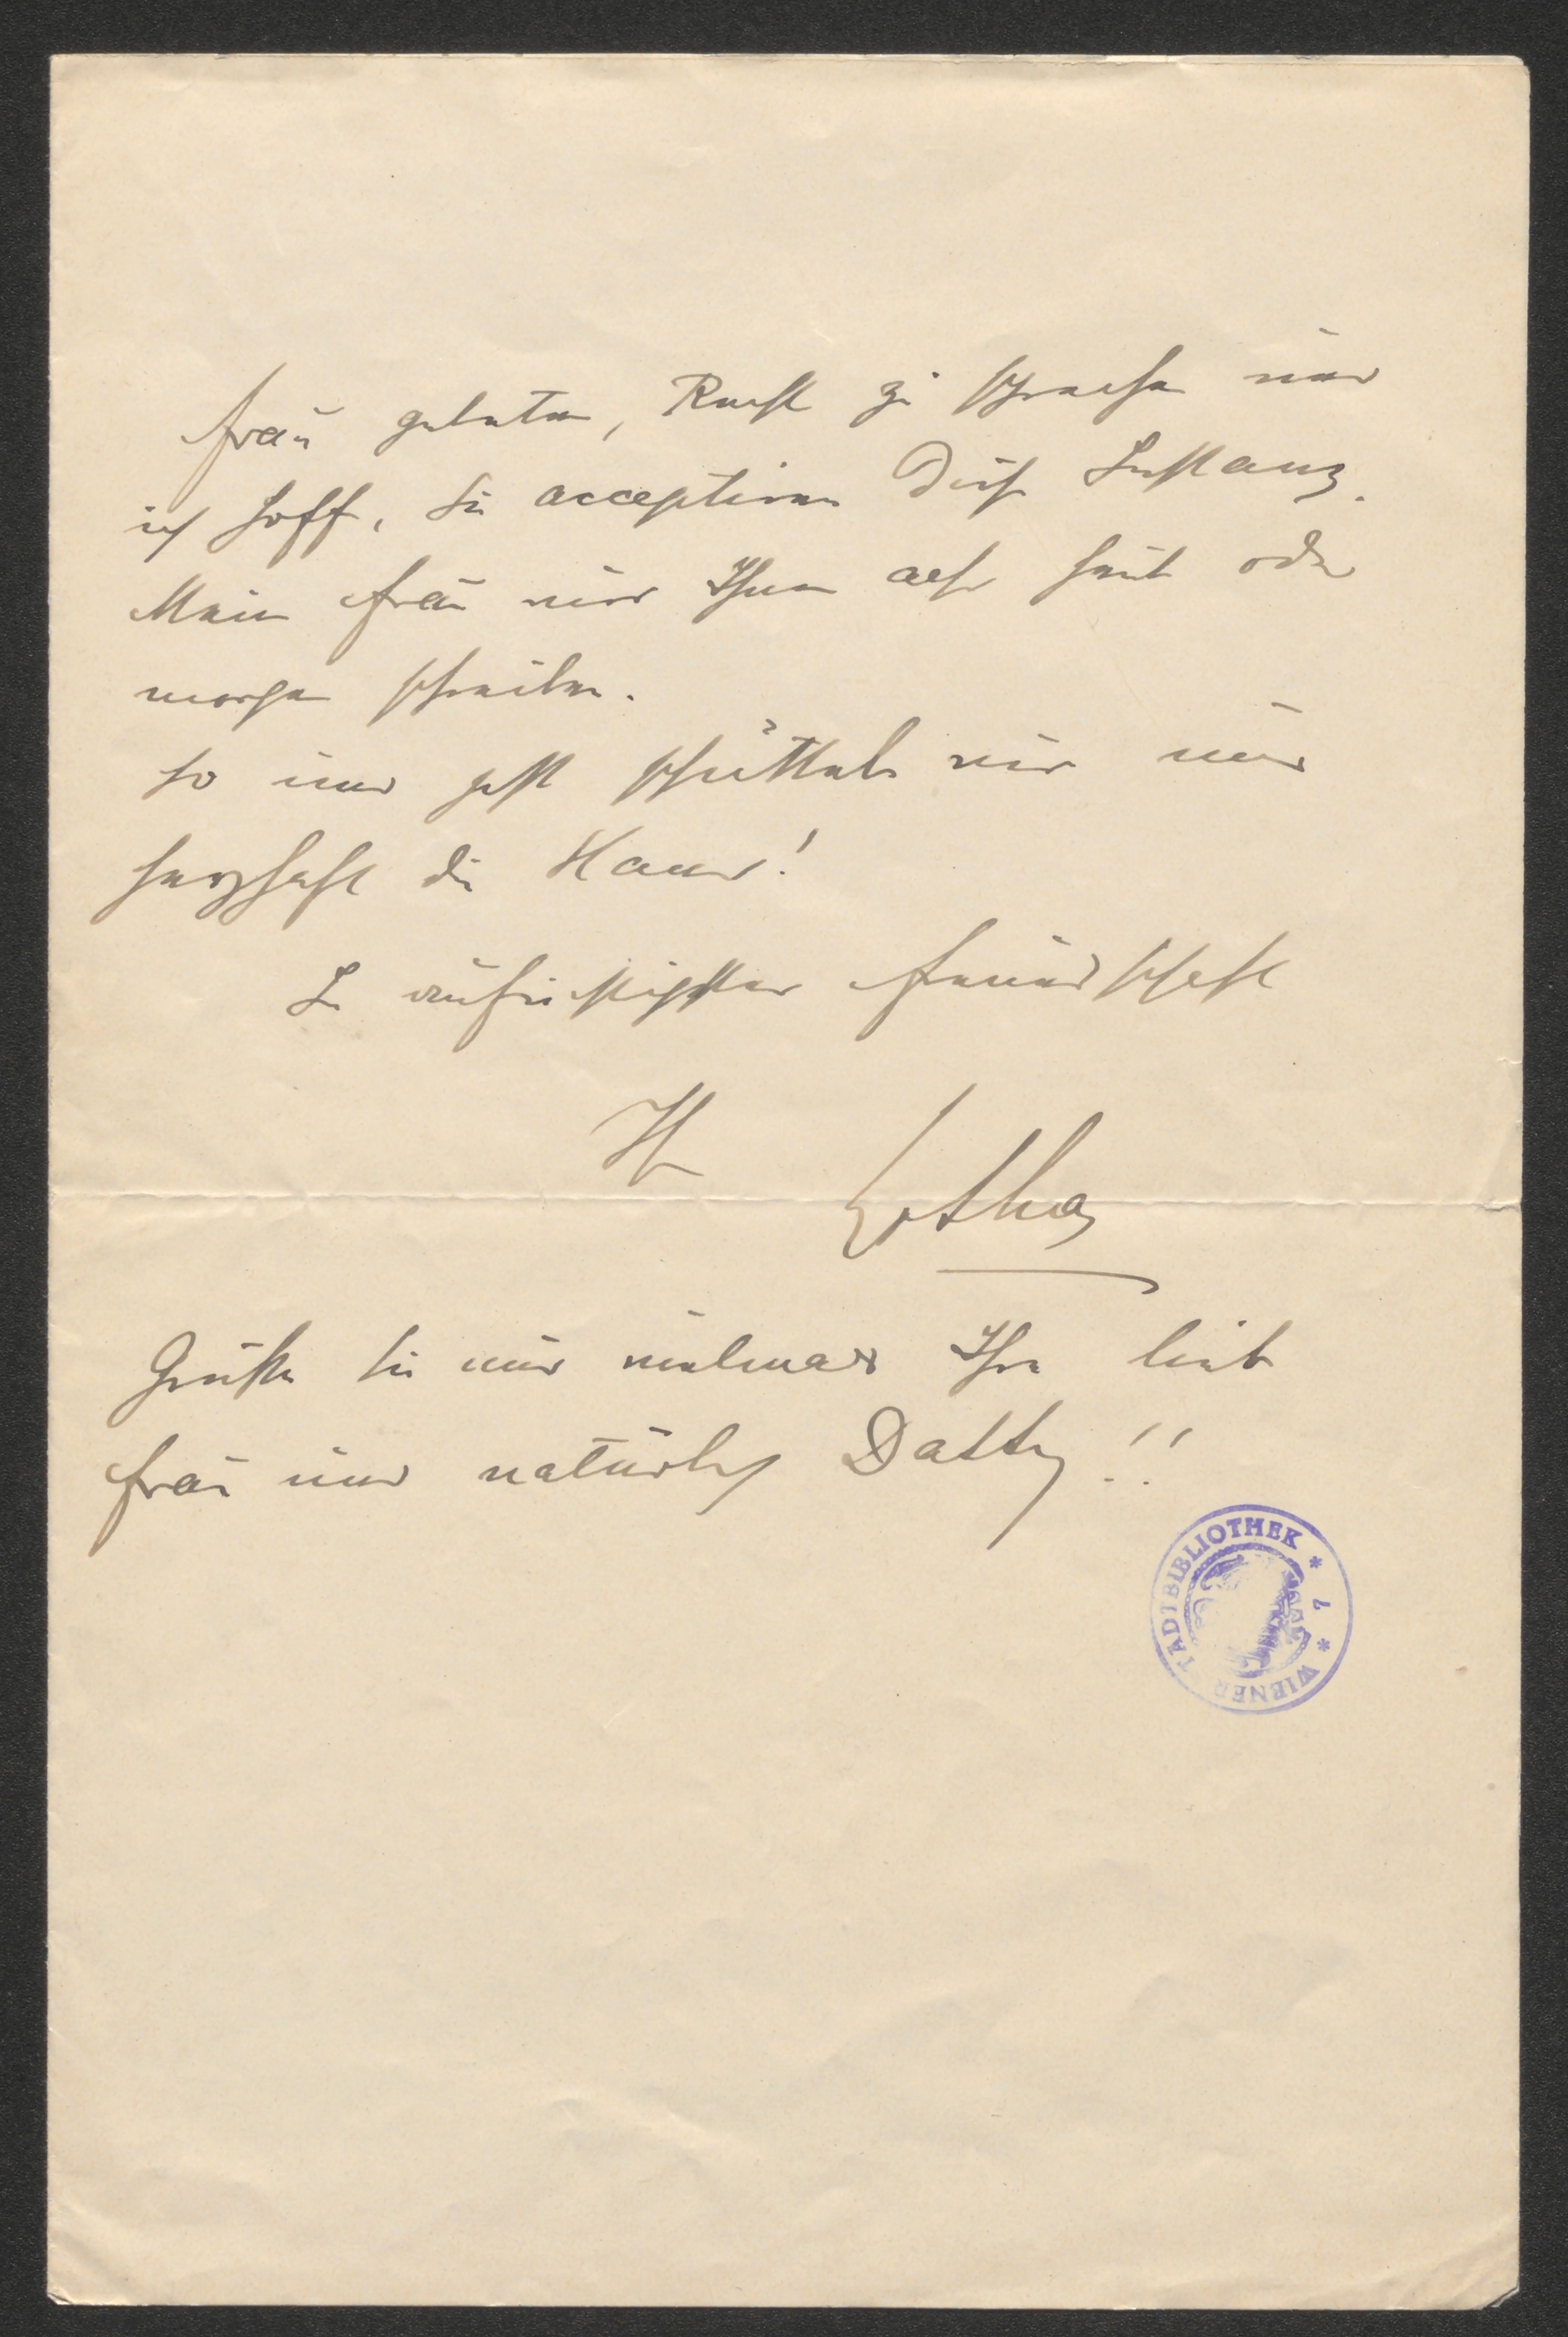 Frau gebeten, Recht zu sprechen und
ich hoffe, Sie acceptiren diese Instanz.
Meine Frau wird Ihnen aehr heute oder
morgen schreiben.
So und jetzt schütteln wir uns
herzhaft die Hand!
In aufrichtigster Freundschaft
Ihr Lothar
Grüßen Sie mir vielmals Ihre liebe
Frau und natürlich Datty!!
WIENER STADTBIBLIOTHEK